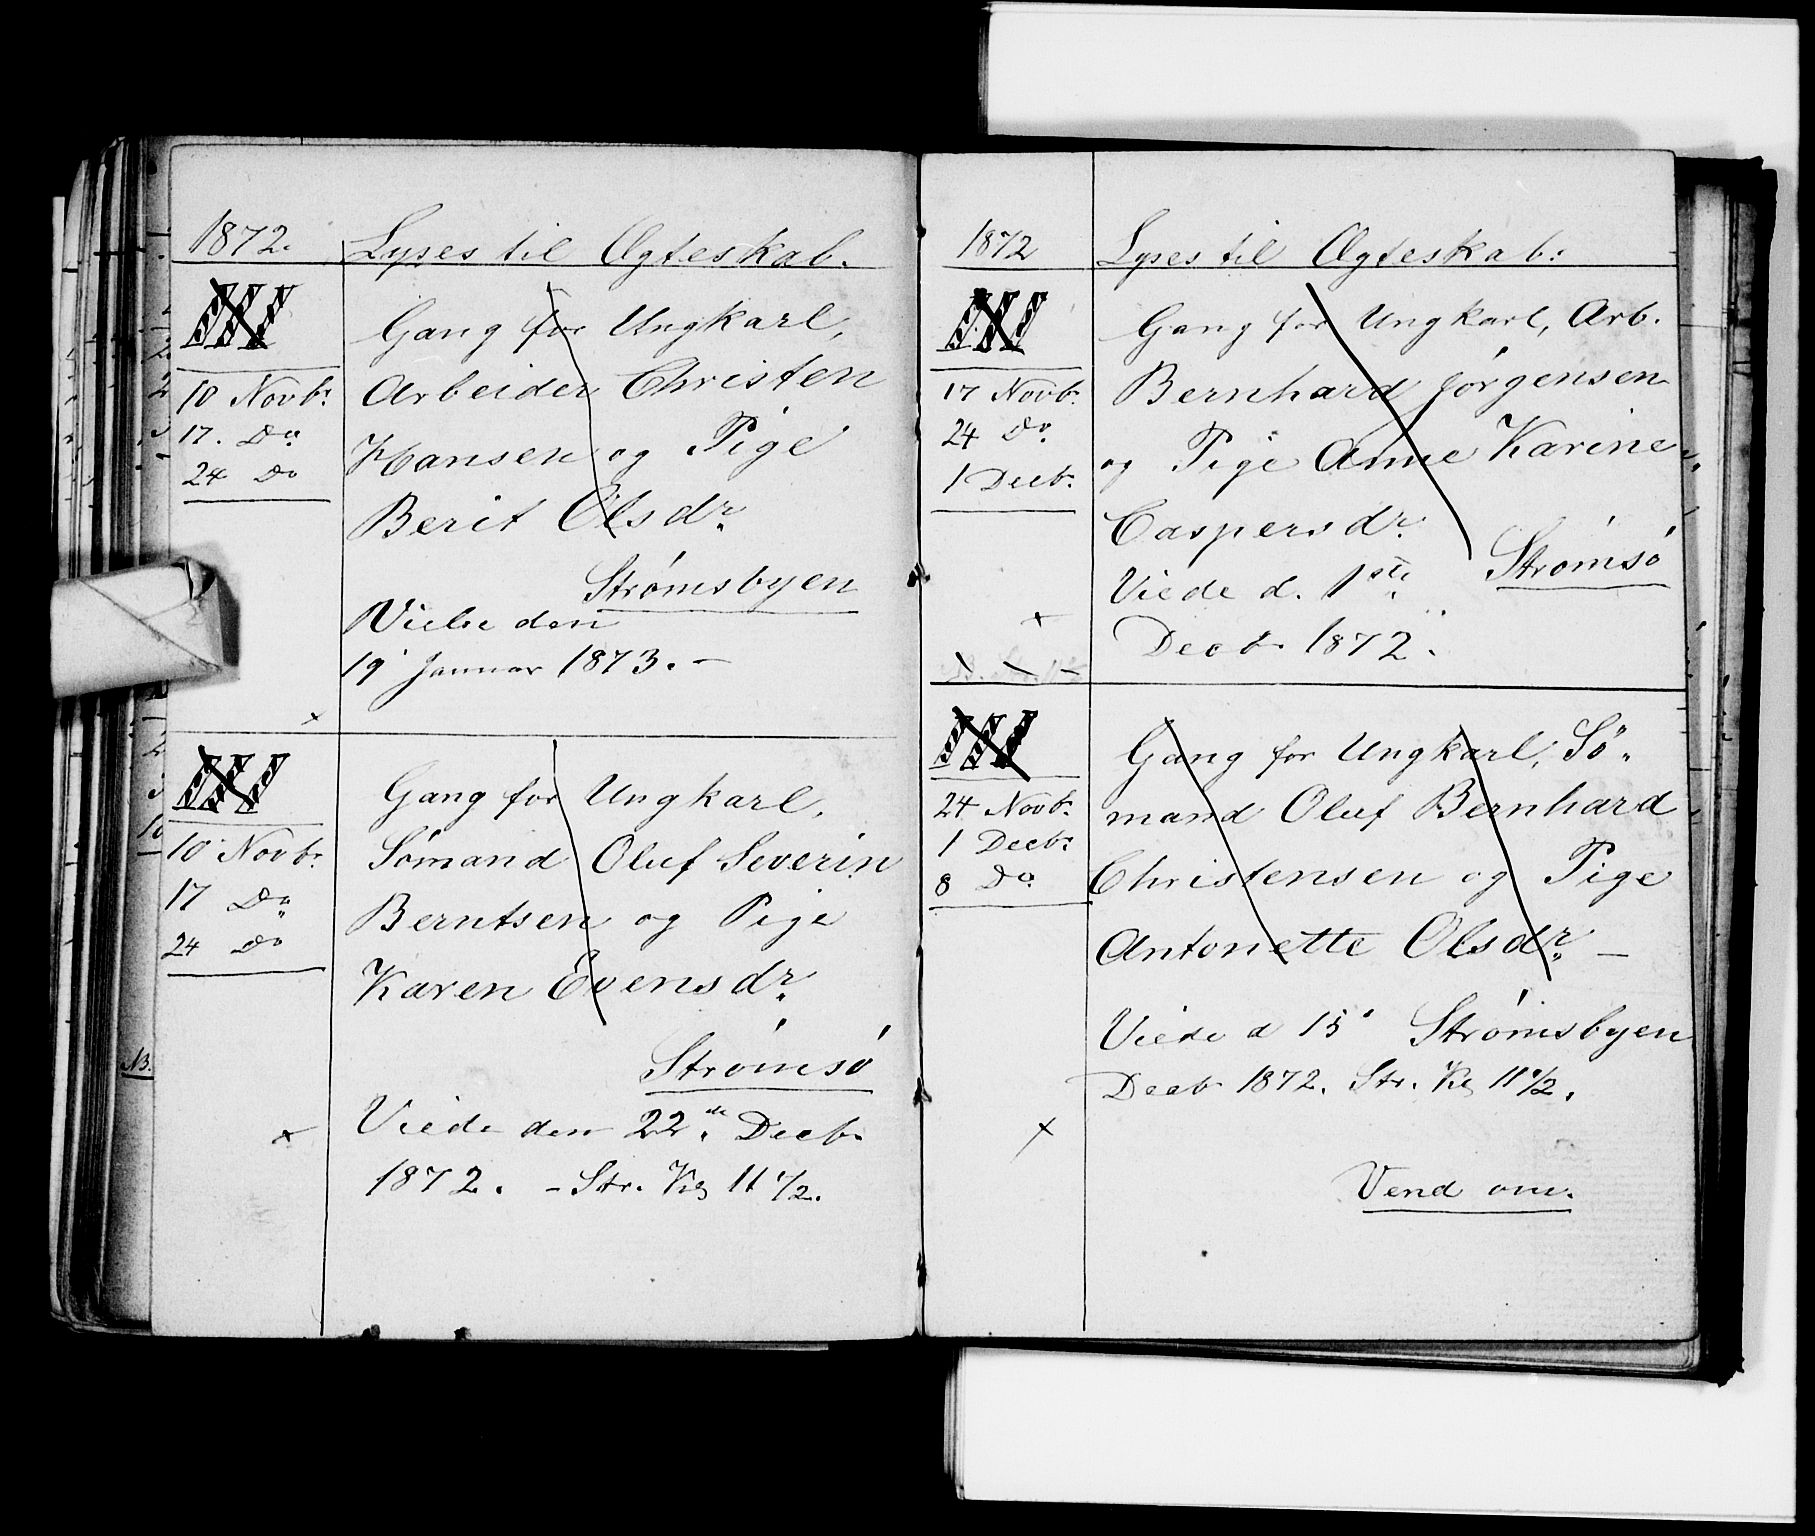 1872.
Lyses til Ægteskab.
III
Gang for Ungkarl,
10 Novbr.
Arbeider Christen
17. Do
Hansen og Pige
24 Do
Berit Olsdr.
Strømsbyen
Viede den
19 Januar 1873. –
x
III
Gang for Ungkarl,
10 Novbr.
Sømand Oluf Severin
17 Do
Berntsen og Pige
24 Do
Karen Evensdr.
Strømsö
x Viede den 22de Decbr
1872. – Str. Kl 11 1/2.
NB.
1872
Lyses til Ægteskab.
III
Gang for Ungkarl, Arb.
17 Novbr.
Bernhard Jörgensen
24 Do
og Pige Anne Karine
1 Decbr.
Caspersdr.
Strömsö
Viede d. 1ste
x
Decbr 1872.
III
Gang for Ungkarl, Sö„
24 Novbr.
mand Oluf Bernhard
1 Decbr.
Christensen og Pige
8 Do
Antonette Olsdr. –
Viede d 15 Strømsbyen
Decbr 1872. Str. Kl 11 1/2.
x
Vend om.